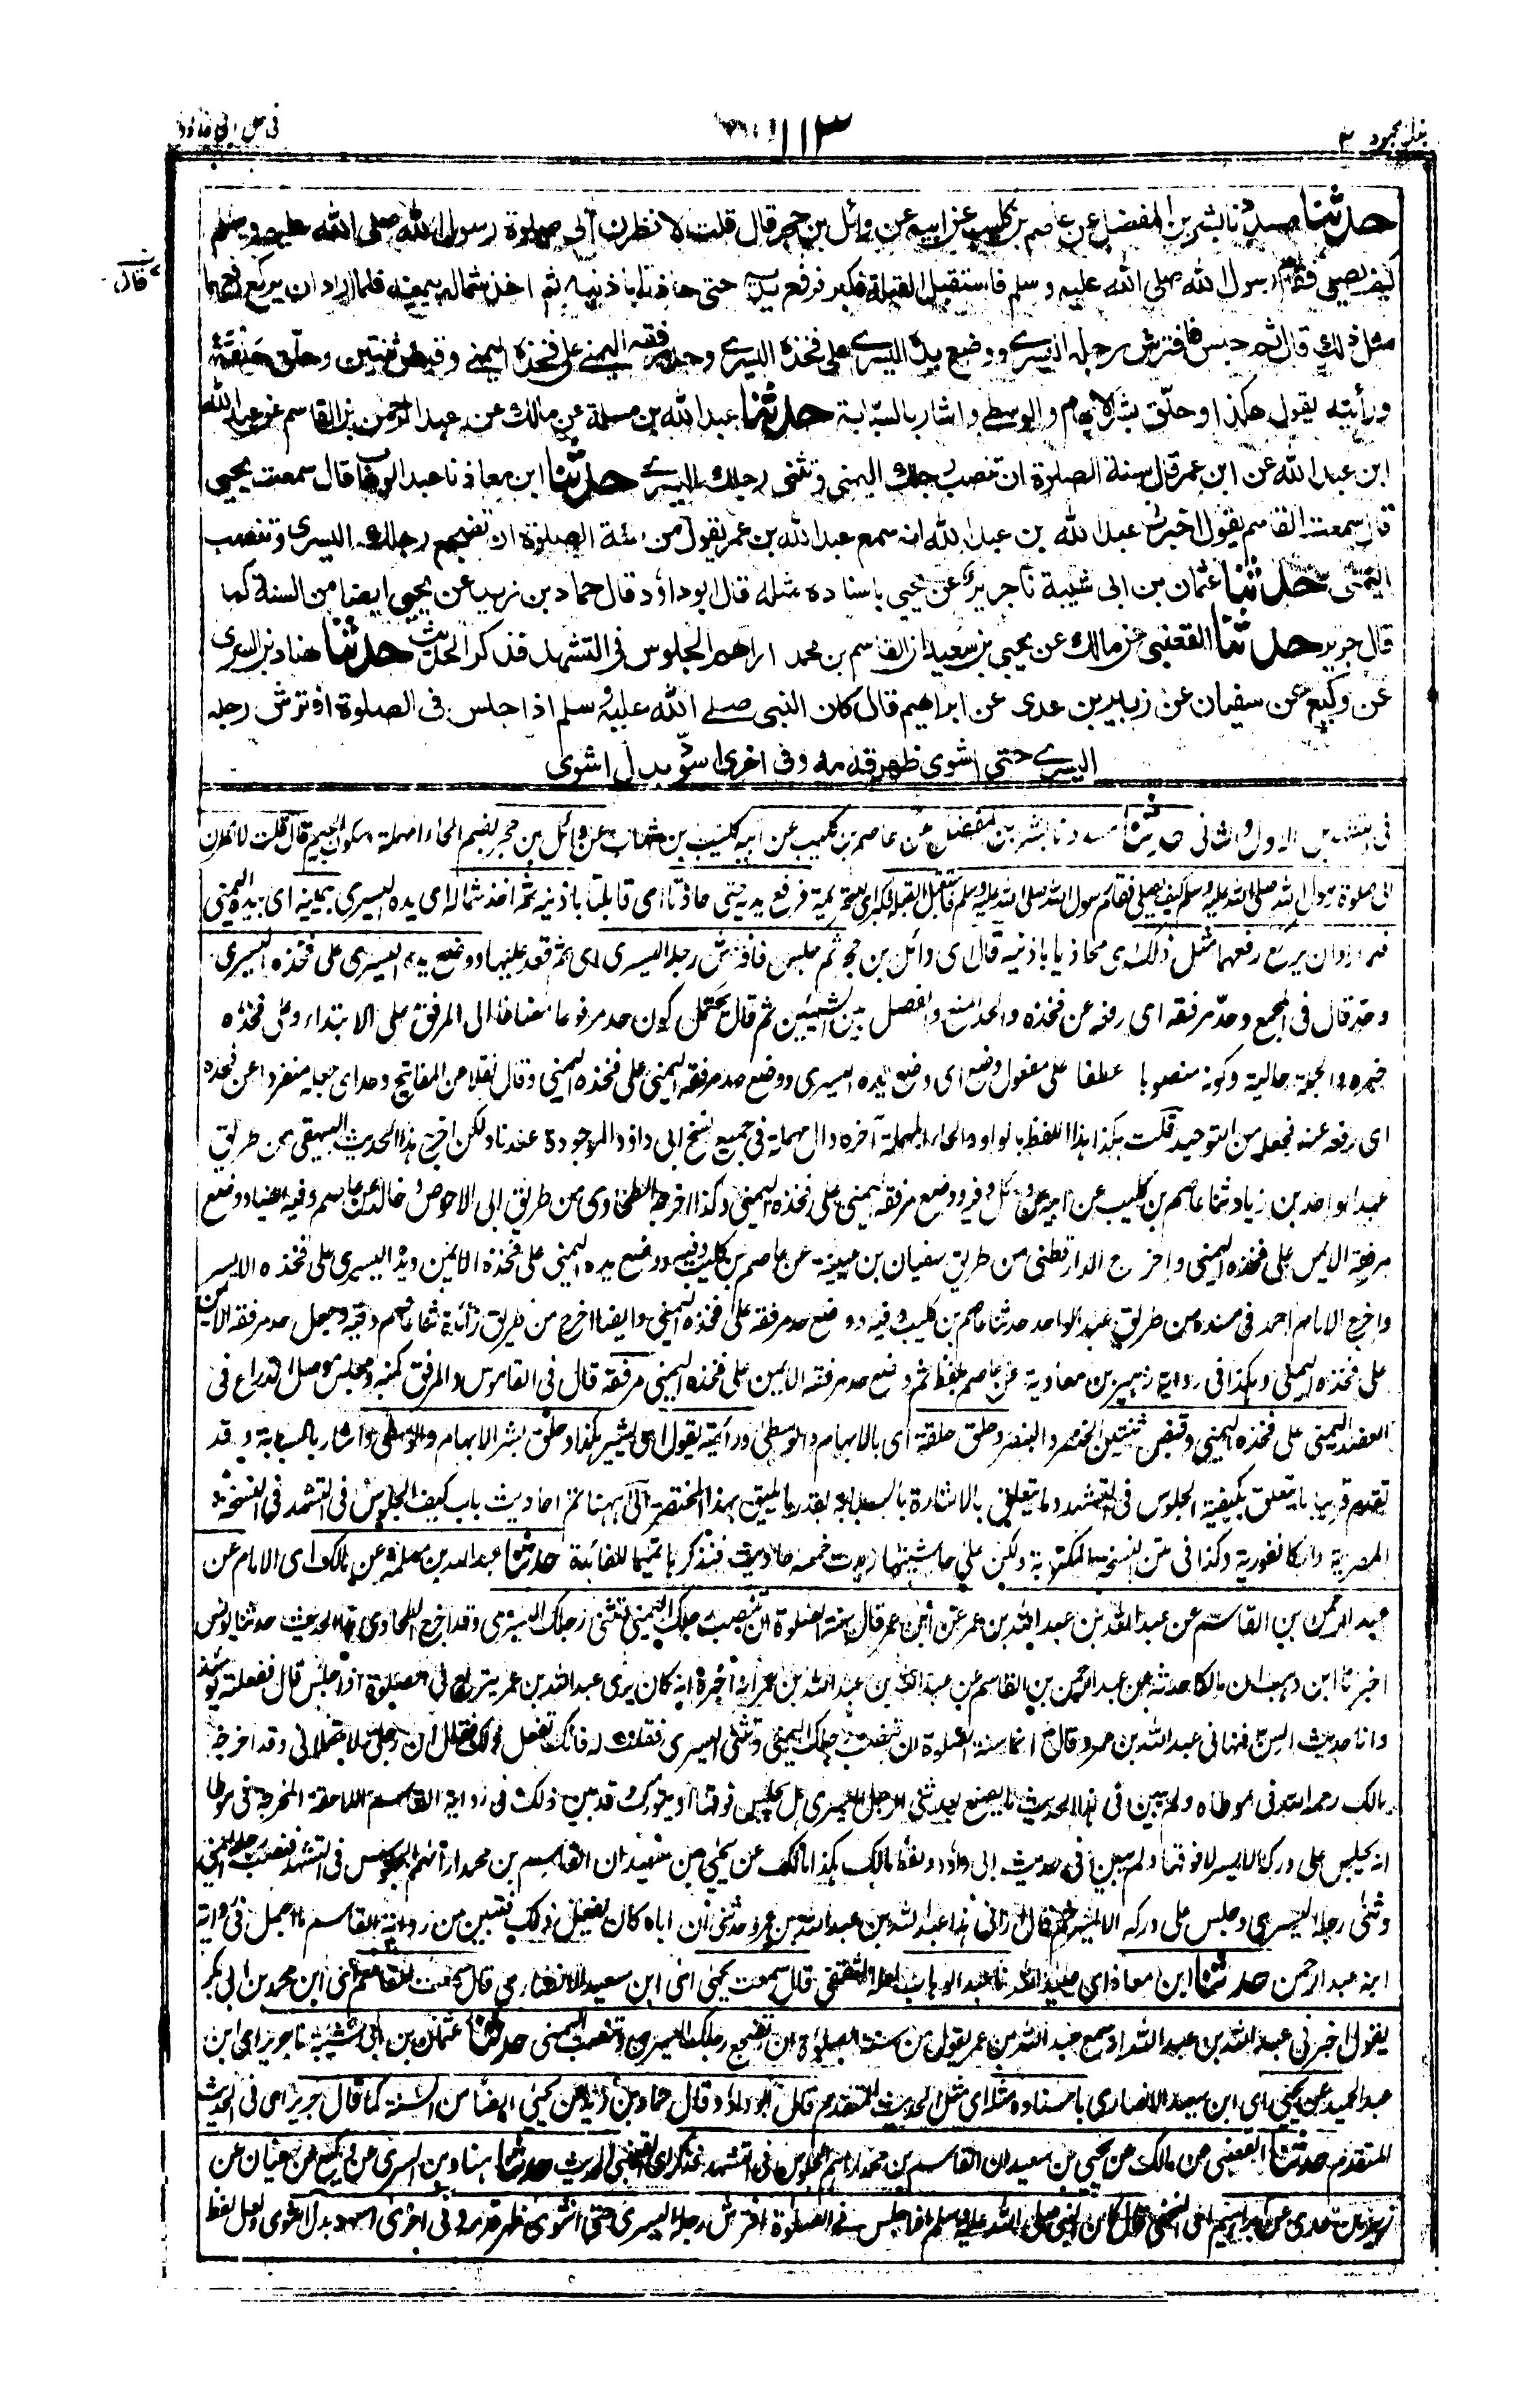 بذل مجهود ٢
١١٣
في حل ابي داود
حدثنا مسدد نا بشر بن المفضل عن عاصم بن كليب عن ابيه عن وائل بن حجر قال قلت لانظرن الى صلوة رسول الله صلى الله عليه وسلم
كيف يصلي فقام رسول الله صلى الله عليه وسلم فاستقبل القبلة فكبر فرفع يديه حتى حاذتا باذنيه ثم اخذ شماله بيمينه فلما اراد ان يركع رفعهما
قال
مثل ذلك قال ثم جلس فافترش رجله اليسرے ووضع يده اليسرے على فخذه اليسرے وحد مرفقه اليمنے على فخذه اليمنے وقبض ثنتين وحلق حلقة
ورأيته يقول هكذا وحلق بشر الابهام والوسطے واشار بالسبابة حدثنا عبد الله بن مسلمة عن مالك عن عبد الرحمن بن القاسم عن عبد الله
ابن عبد الله عن ابن عمر قال سنة الصلوة ان تنصب رجلك اليمنى وتثنى رجلك اليسرے حدثنا ابن معاذ نا عبد الوهاب قال سمعت يحيى
قال سمعت القاسم يقول اخبرني عبد الله بن عبد الله انه سمع عبد الله بن عمر يقول من سنة الصلوة ان تضجع رجلك اليسرى وتنصب
اليمنى حدثنا عثمان بن ابى شيبة نا جرير عن يحيى باسناده مثله قال ابو داؤد قال حماد بن زيد عن يحيى ايضا من السنة كما
قال جرير حدثنا القعنبى عن مالك عن يحيى بن سعيد ان القاسم بن محمد اراهم الجلوس فى التشهد فذكر الحديث حدثنا هناد بن السرى
عن وكيع عن سفيان عن زبير بن عدى عن ابراهيم قال كان النبى صلے الله عليه وسلم اذا جلس فى الصلوة افترش رجله
اليسرے حتى اشوى ظهر قدمه وفى اخرى اسود بدل اشوى
فى التشهدين الاول والثانى حدثنا مسدد نا بشر بن المفضل عن عاصم بن كليب عن ابيه كليب بن شهاب عن وائل بن حجر بضم الحاء المهملة وسكون الجيم قال قلت لانظرن
الى صلوة رسول الله صلى الله عليه وسلم كيف يصلى فقام رسول الله صلى الله عليه وسلم فاستقبل القبلة فكبر اى للتحريمة فرفع يديه حتى حاذتا اى قابلتا باذنيه ثم اخذ شماله اى يده اليسرى بيمينه اى بيده اليمنى
فلما اراد ان يركع رفعهما مثل ذلك اى محاذيا باذنيه قال اى وائل بن حجر ثم جلس فافترش رجله اليسرى اى ثم قعد عليها ووضع يده اليسرى على فخذه اليسرى
وحد قال فى المجمع وحد مرفقه اى رفعه عن فخذه والحد المنع والفصل بين الشيئين ثم قال يحتمل كون حد مرفوعا مضافا الى المرفق على الابتداء وعلى فخذه
خبره والجملة حالية وكونه منصوبا عطفا على مفعول وضع اى وضع يده اليسرى ووضع حد مرفقه اليمنى على فخذه اليمنى وقال نقلا من المفاتيح وحد اى جعله منفردا عن فخذه
اى رفعه عنه فجعله من التوحيد قلت هكذا هذا اللفظ بالواو والحاء المهملة آخره دال مهملة فى جميع نسخ ابى داؤد الموجودة عندنا ولكن اخرج هذا الحديث البيهقى من طريق
عبد الواحد بن زياد ثنا عاصم بن كليب عن ابيه عن وائل وفيه ووضع مرفقه اليمنى على فخذه اليمنى وكذا اخرجه الطحاوى من طريق ابى الاحوص وخالد عن عاصم وفيه ايضا ووضع
مرفقه الايمن على فخذه اليمنى واخرج الدارقطنى من طريق سفيان بن عيينة عن عاصم بن كليب وفيه ووضع يده اليمنى على فخذه الايمن ويده اليسرى على فخذه الايسر
واخرج الامام احمد فى مسنده من طريق عبد الواحد حدثنا عاصم بن كليب وفيه ووضع حد مرفقه على فخذه اليمنى وايضا اخرج من طريق زائدة ثنا عاصم وفيه وجعل حد مرفقه الايمن
على فخذه اليمنى وهكذا فى رواية زهير بن معاوية عن عاصم بلفظ ثم وضع حد مرفقه الايمن على فخذه اليمنى مرفقه قال فى القاموس والمرفق كمنبر ومجلس موصل الذراع فى
العضد اليمنى على فخذه اليمنى وقبض ثنتين الخنصر والبنصر وحلق حلقة اى بالابهام والوسطى ورأيته يقول اى يشير هكذا وحلق بشر الابهام والوسطى واشار بالسبابة وقد
تقدم قريبا ما يتعلق بكيفية الجلوس فى التشهد وما يتعلق بالاشارة بالسبابة بقدر ما يليق بهذا المختصر الى ههنا تم احاديث باب كيف الجلوس فى التشهد فى النسخة
المصرية والكانفورية وكذا فى متن النسخة المكتوبة ولكن على حاشيتها زيدت خمسة احاديث فنذكرها تتميما للفائدة حدثنا عبد الله بن مسلمة عن مالك اى الامام عن
عبد الرحمن بن القاسم عن عبد الله بن عبد الله بن عمر عن ابن عمر قال سنة الصلوة ان تنصب رجلك اليمنى وتثنى رجلك اليسرى وقد اخرج الطحاوى هذا الحديث حدثنا يونس
اخبرنا ابن وهب ان مالكا حدثه عن عبد الرحمن بن القاسم عن عبد الله بن عبد الله بن عمر انه اخبره انه كان يرى عبد الله بن عمر يتربع فى الصلوة اذا جلس قال ففعلته يومئذ
وانا حديث السن فنهانى عبد الله بن عمر وقال انما سنة الصلوة ان تنصب رجلك اليمنى وتثنى اليسرى فقلت له فانك تفعل ذلك فقال ان رجلى لا تحملانى وقد اخرجه
مالك رحمه الله فى موطاه ولم يبين فى هذا الحديث ما يصنع بعد ثنى الرجل اليسرى هل يجلس فوقها او يتورك وقد بين ذلك فى رواية القاسم اللاحقة المخرجة فى موطا
انه يجلس على وركه الايسر لا فوقها ولم يبين فى حديث ابى داؤد ولفظ مالك هكذا مالك عن يحيى بن سعيد ان القاسم بن محمد اراهم الجلوس فى التشهد فنصب رجله اليمنى
وثنى رجله اليسرى وجلس على وركه الايسر ثم قال ارانى هذا عبد الله بن عبد الله بن عمر وحدثنى ان اباه كان يفعل ذلك فتبين من رواية القاسم ما اجمل فى رواية
ابنه عبد الرحمن حدثنا ابن معاذ اى عبيد الله نا عبد الوهاب الثقفى قال سمعت يحيى اى ابن سعيد الانصارى قال سمعت القاسم اى ابن محمد بن ابى بكر
يقول اخبرنى عبد الله بن عبد الله انه سمع عبد الله بن عمر يقول من سنة الصلوة ان تضجع رجلك اليسرى وتنصب اليمنى حدثنا عثمان بن ابى شيبة نا جرير اى ابن
عبد الحميد عن يحيى اى ابن سعيد الانصارى باسناده مثله اى مثل الحديث المتقدم قال ابو داؤد وقال حماد بن زيد عن يحيى ايضا من السنة كما قال جرير اى فى الحديث
المتقدم حدثنا القعنبى عن مالك عن يحيى بن سعيد ان القاسم بن محمد اراهم الجلوس فى التشهد فذكر اى القعنبى الحديث حدثنا هناد بن السرى عن وكيع عن سفيان عن
زبير بن عدى عن ابراهيم اى النخعى قال كان النبى صلى الله عليه وسلم اذا جلس فى الصلوة افترش رجله اليسرى حتى اشوى ظهر قدمه وفى اخرى اسود بدل اشوى ولعل لفظ